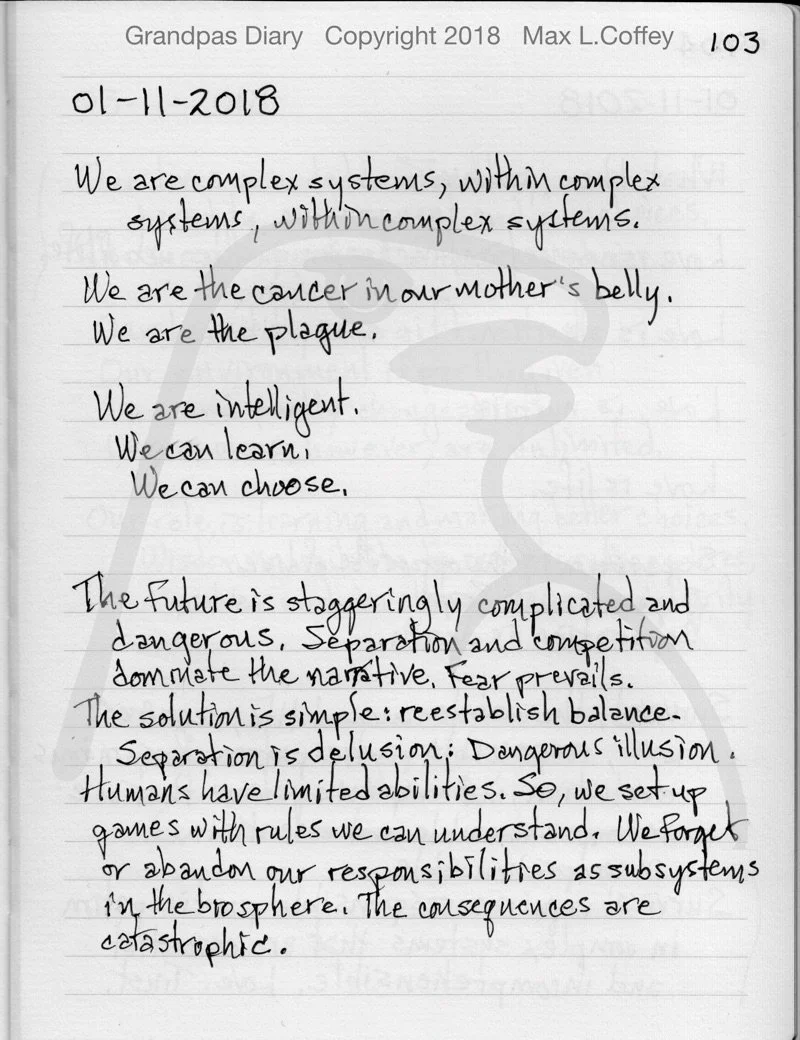 Grandpas Diary Copyright 2018 Max L.Coffey 103
01-11-2018
We are complex systems, within complex
systems, within complex systems.
We are the cancer in our mother's belly.
We are the plague.
We are intelligent.
We can learn.
We can choose.
The future is staggeringly complicated and
dangerous. Separation and competition
dominate the narrative. Fear prevails.
The solution is simple: reestablish balance.
Separation is delusion; Dangerous illusion.
Humans have limited abilities. So, we set up
games with rules we can understand. We forget
or abandon our responsibilities as subsystems
in the biosphere. The consequences are
catastrophic.